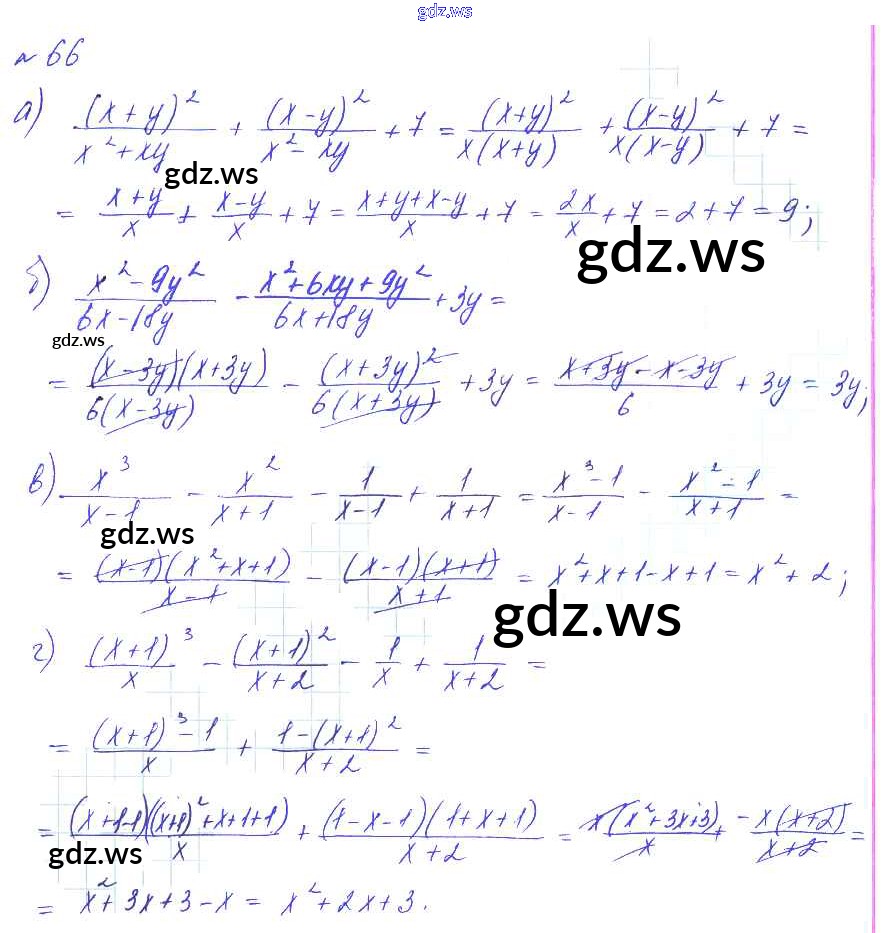 gdz.ws
№ 66
а) (x+y)²/(x²+xy) + (x-y)²/(x²-xy) + 7 = (x+y)²/(x(x+y)) + (x-y)²/(x(x-y)) + 7 =
gdz.ws
= (x+y)/x + (x-y)/x + 7 = (x+y+x-y)/x + 7 = 2x/x + 7 = 2+7 = 9;
gdz.ws
б) (x²-9y²)/(6x-18y) - (x²+6xy+9y²)/(6x+18y) + 3y =
gdz.ws
= (x-3y)(x+3y)/(6(x-3y)) - (x+3y)²/(6(x+3y)) + 3y = (x+3y-x-3y)/6 + 3y = 3y;
в) x³/(x-1) - x²/(x+1) - 1/(x-1) + 1/(x+1) = (x³-1)/(x-1) - (x²-1)/(x+1) =
gdz.ws
= (x-1)(x²+x+1)/(x-1) - (x-1)(x+1)/(x+1) = x²+x+1-x+1 = x²+2;
gdz.ws
г) (x+1)³/x - (x+1)²/(x+2) - 1/x + 1/(x+2) =
= ((x+1)³-1)/x + (1-(x+1)²)/(x+2) =
= (x+1-1)((x+1)²+x+1+1)/x + (1-x-1)(1+x+1)/(x+2) = x(x²+3x+3)/x + -x(x+2)/(x+2) =
gdz.ws
= x²+3x+3-x = x²+2x+3.